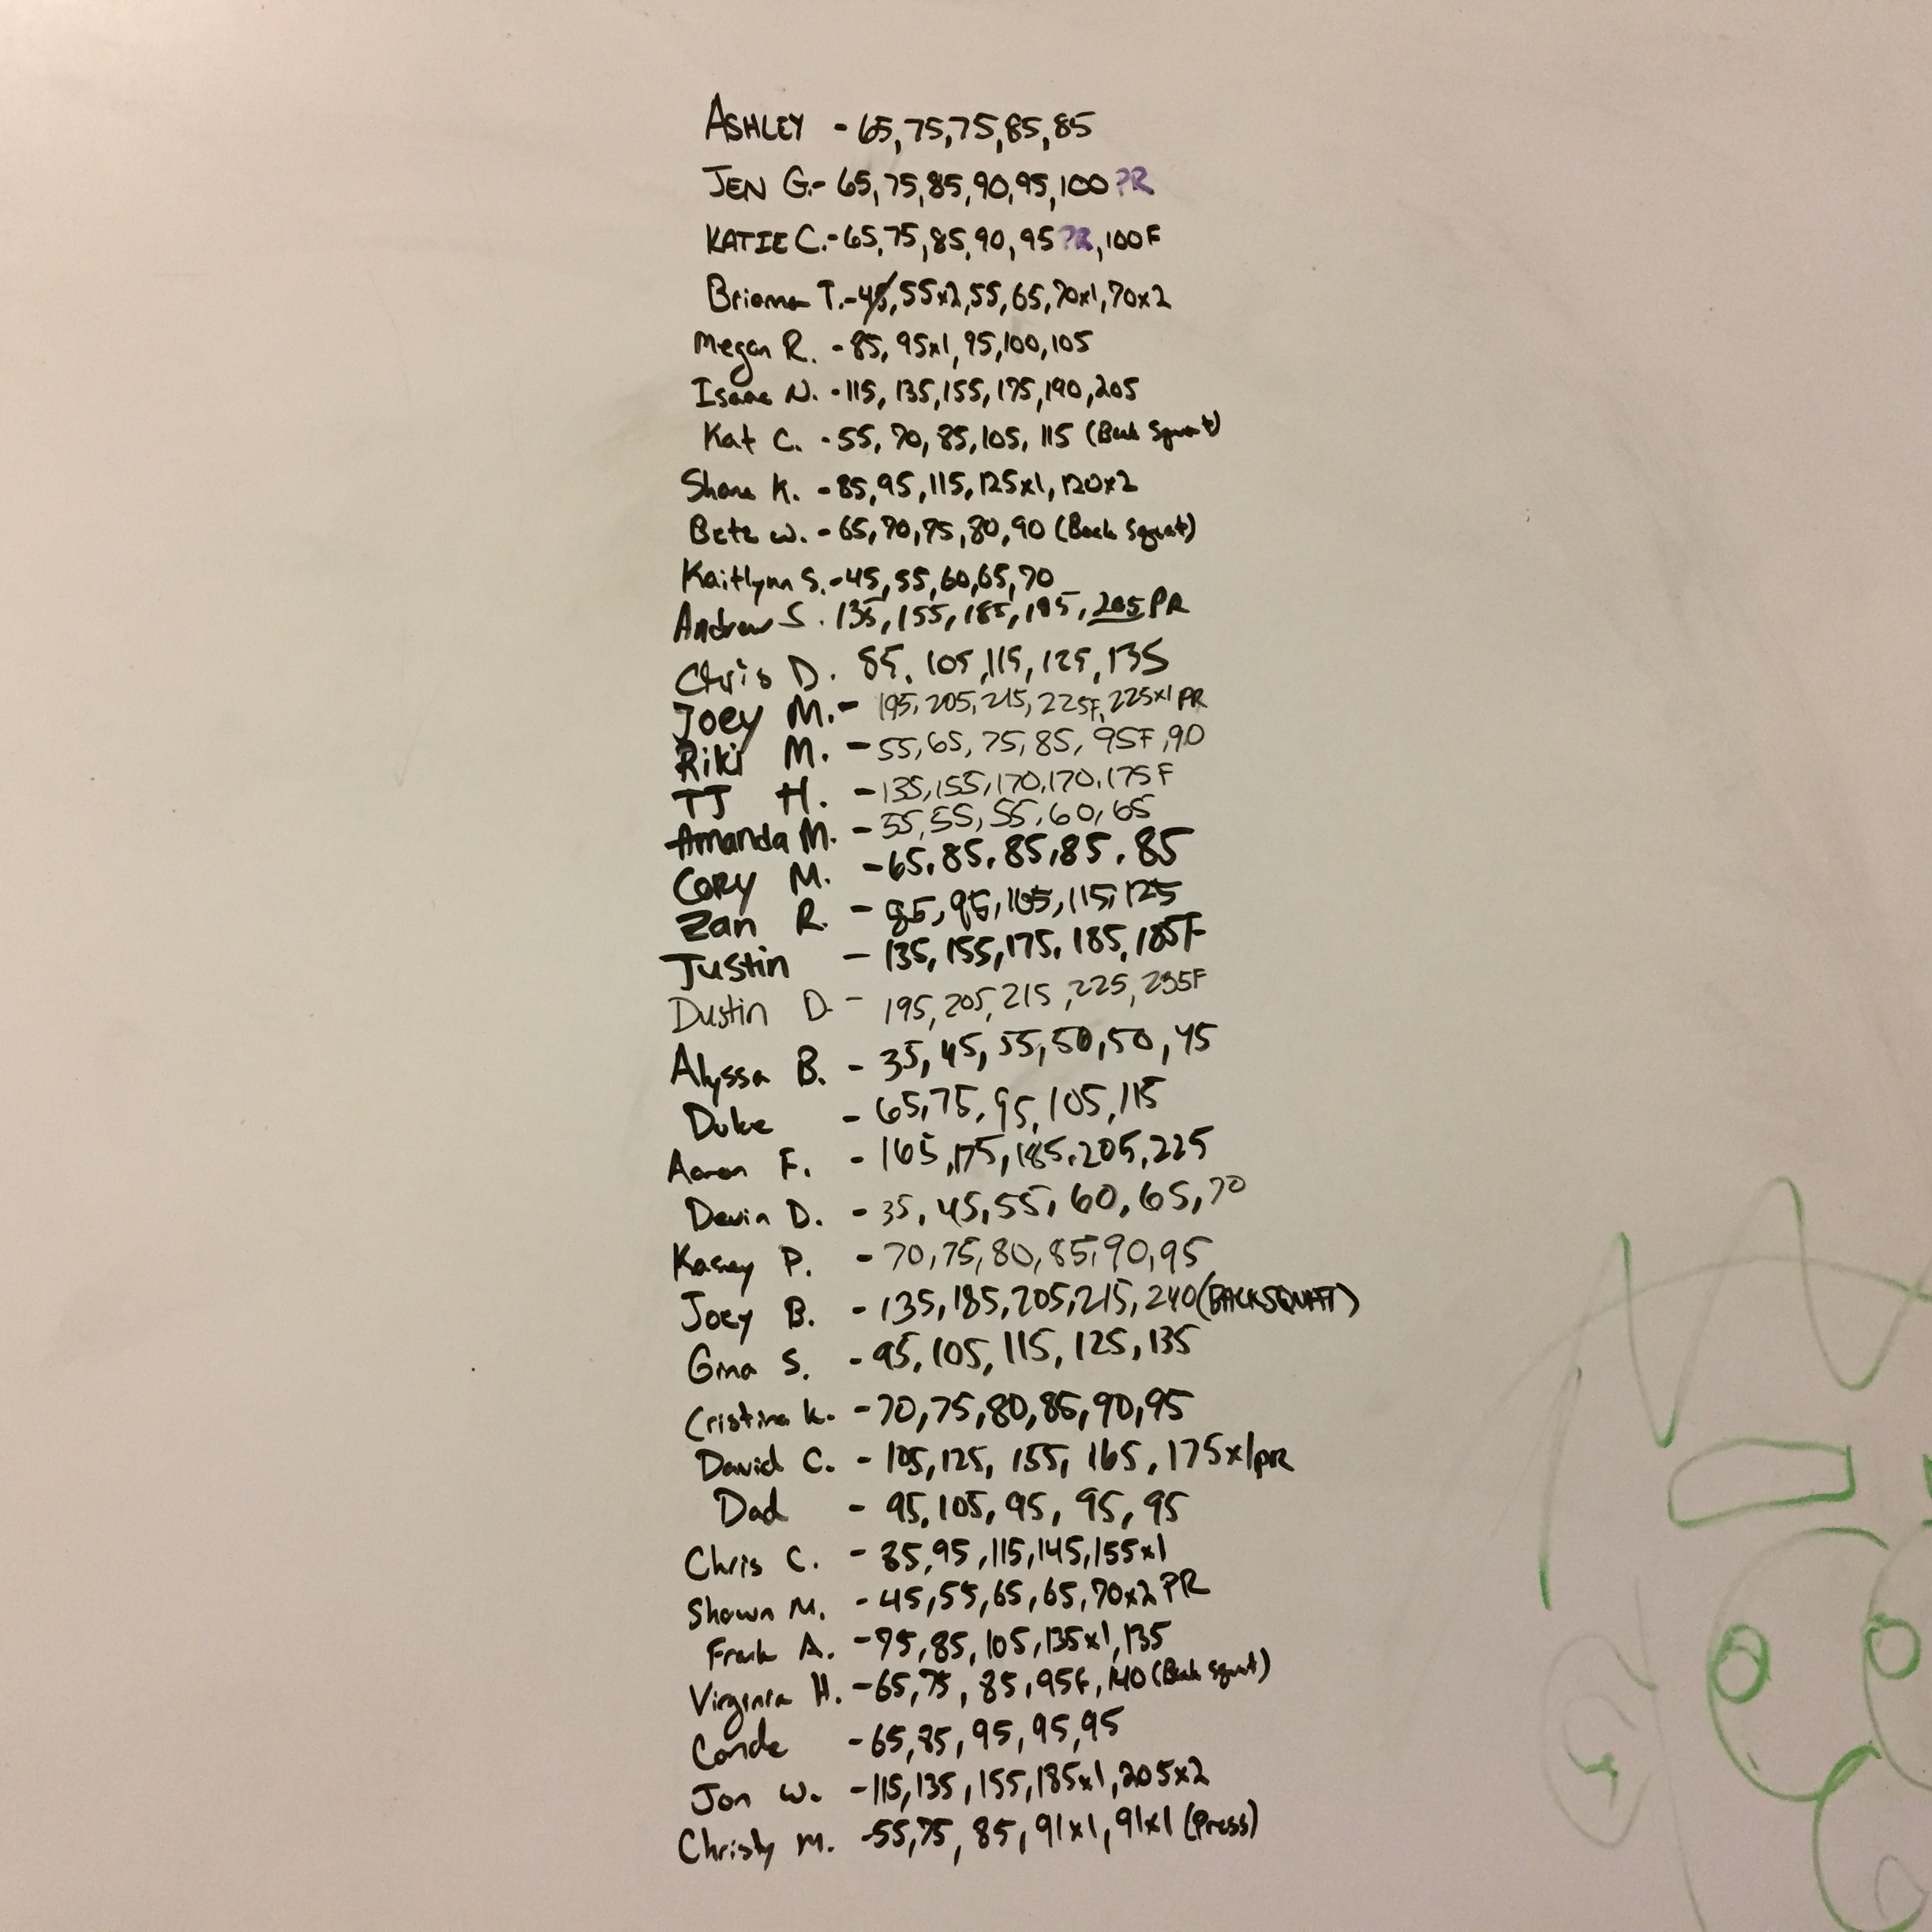 ASHLEY - 65,75,75,85,85
JEN G.- 65,75,85,90,95,100 PR
KATIE C.- 65,75,85,90,95 PR,100F
Brianna T.-45,55x2,55,65,70x1,70x2
Megan R. - 85, 95x1, 95,100,105
Isaac N. - 115, 135,155,175,190,205
Kat C. - 55, 70, 85,105, 115 (Back Squat)
Shane K. - 85,95,115,125x1,120x2
Beth W. - 65,70,75,80,90 (Back Squat)
Kaitlynn S. - 45,55,60,65,70
Andrew S. 135,155,185,195,205 PR
Chris D. 85, 105,115,125,135
Joey M. - 195,205,215,225F,225x1 PR
Riki M. - 55,65,75,85,95F,90
TJ H. - 135,155,170,170,175F
Amanda M. - 55,55,55,60,65
Cory M. - 65,85,85,85,85
Zan R. - 85,95,105,115,125
Justin - 135,155,175,185,185F
Dustin D. - 195,205,215,225,235F
Alyssa B. - 35,45,55,50,50,45
Duke - 65,75,95,105,115
Aaron F. - 165,175,185,205,225
Devin D. - 35,45,55,60,65,70
Kasey P. - 70,75,80,85,90,95
Joey B. - 135,185,205,215,240 (BACKSQUAT)
Gina S. - 95,105,115,125,135
Cristina K. - 70,75,80,85,90,95
David C. - 105,125,155,165,175x1 PR
Dad - 95,105,95,95,95
Chris C. - 85,95,115,145,155x1
Shawn M. - 45,55,65,65,70x2 PR
Frank A. - 75,85,105,135x1,135
Virginia H. - 65,75,85,95F,140 (Back Squat)
Conde - 65,85,95,95,95
Jon W. - 115,135,155,185x1,205x2
Christy M. - 55,75,85,91x1,91x1 (Press)